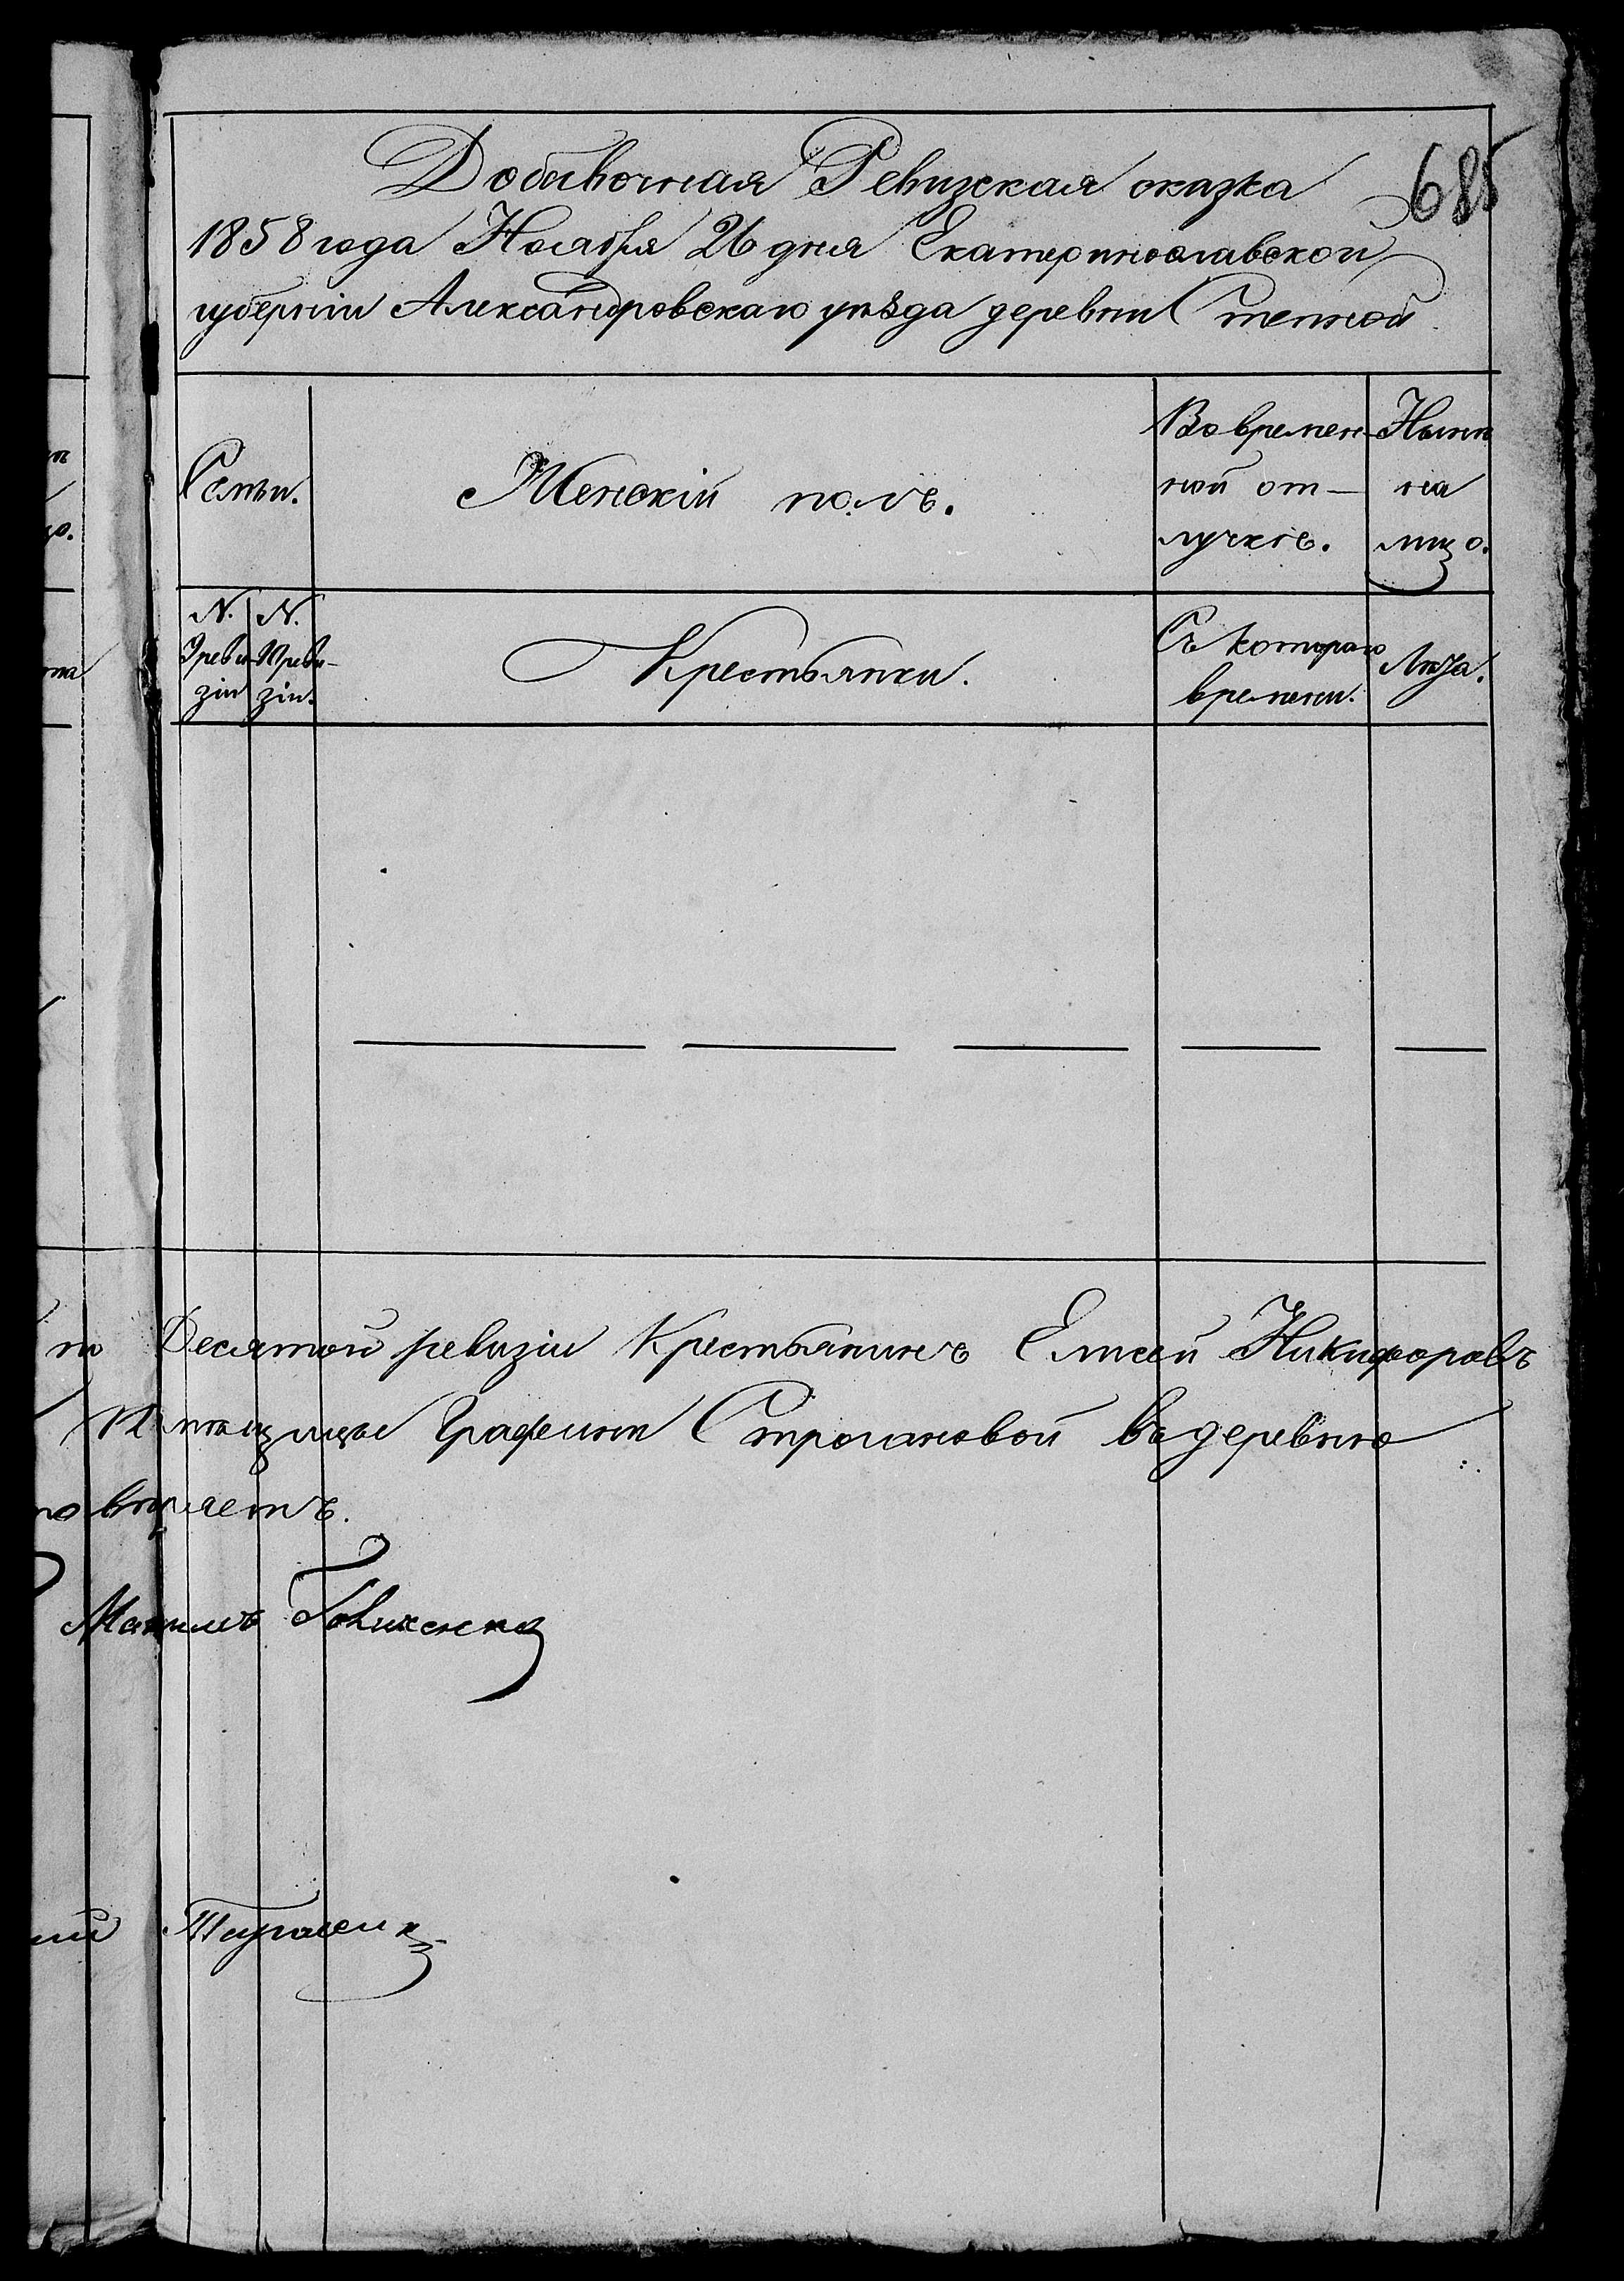 Добавочная Ревизская сказка
685
1858 года Ноября 26 дня Екатеринославской
губерніи Александровскаго уѣзда деревни Степной
Семьи.
Женскій полъ.
Во времен-
ной от-
лучкѣ.
Нынѣ
на
лицо.
N.
9 реви
зіи
N.
10 реви-
зіи.
Крестьянки.
Съ котораго
времени.
Лѣта.
Десятой ревизіи Крестьянинъ Елисей Никифоровъ
Графини Строгановой въ деревню